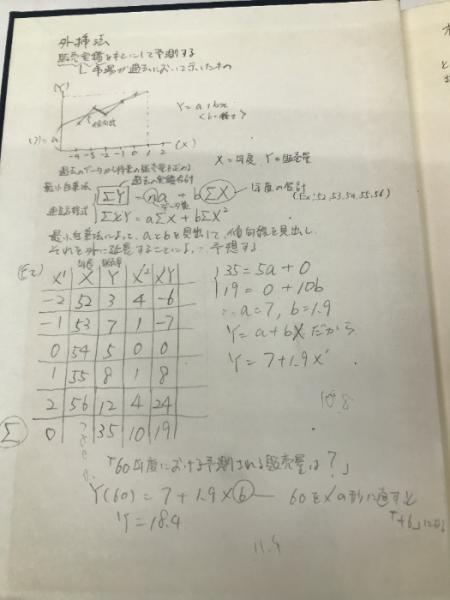 外挿法
販売実績をもとにして予測する
└ 市場が過去において示したもの
(Y)
Y = a + bx
傾向線
(7) = a
-4 -3 -2 -1 0 1 2 (X)
X = 年度、Y = 販売量
過去のデータから将来の販売量を
過去の実績合計
最小自乗法 ΣY = na + bΣX 年度の合計
(Ex; 52, 53, 54, 55, 56)
データ数
連立方程式 ΣXY = aΣX + bΣX²
最小自乗法によって、aとbを見出して、傾向線を見出し、
それを外に延長することによって予想する。
年度 販売量
X' X Y X'² XY
-2 52 3 4 -6
-1 53 7 1 -7
0 54 5 0 0
1 55 8 1 8
2 56 12 4 24
Σ 0 35 10 19
35 = 5a + 0
19 = 0 + 10b
∴ a = 7, b = 1.9
Y = a + bX だから
Y = 7 + 1.9X'
「60年度における予測される販売量は?」
Y(60) = 7 + 1.9 × 6 — 60をX'の形に直すと
「+6」になる
Y = 18.4
11.4